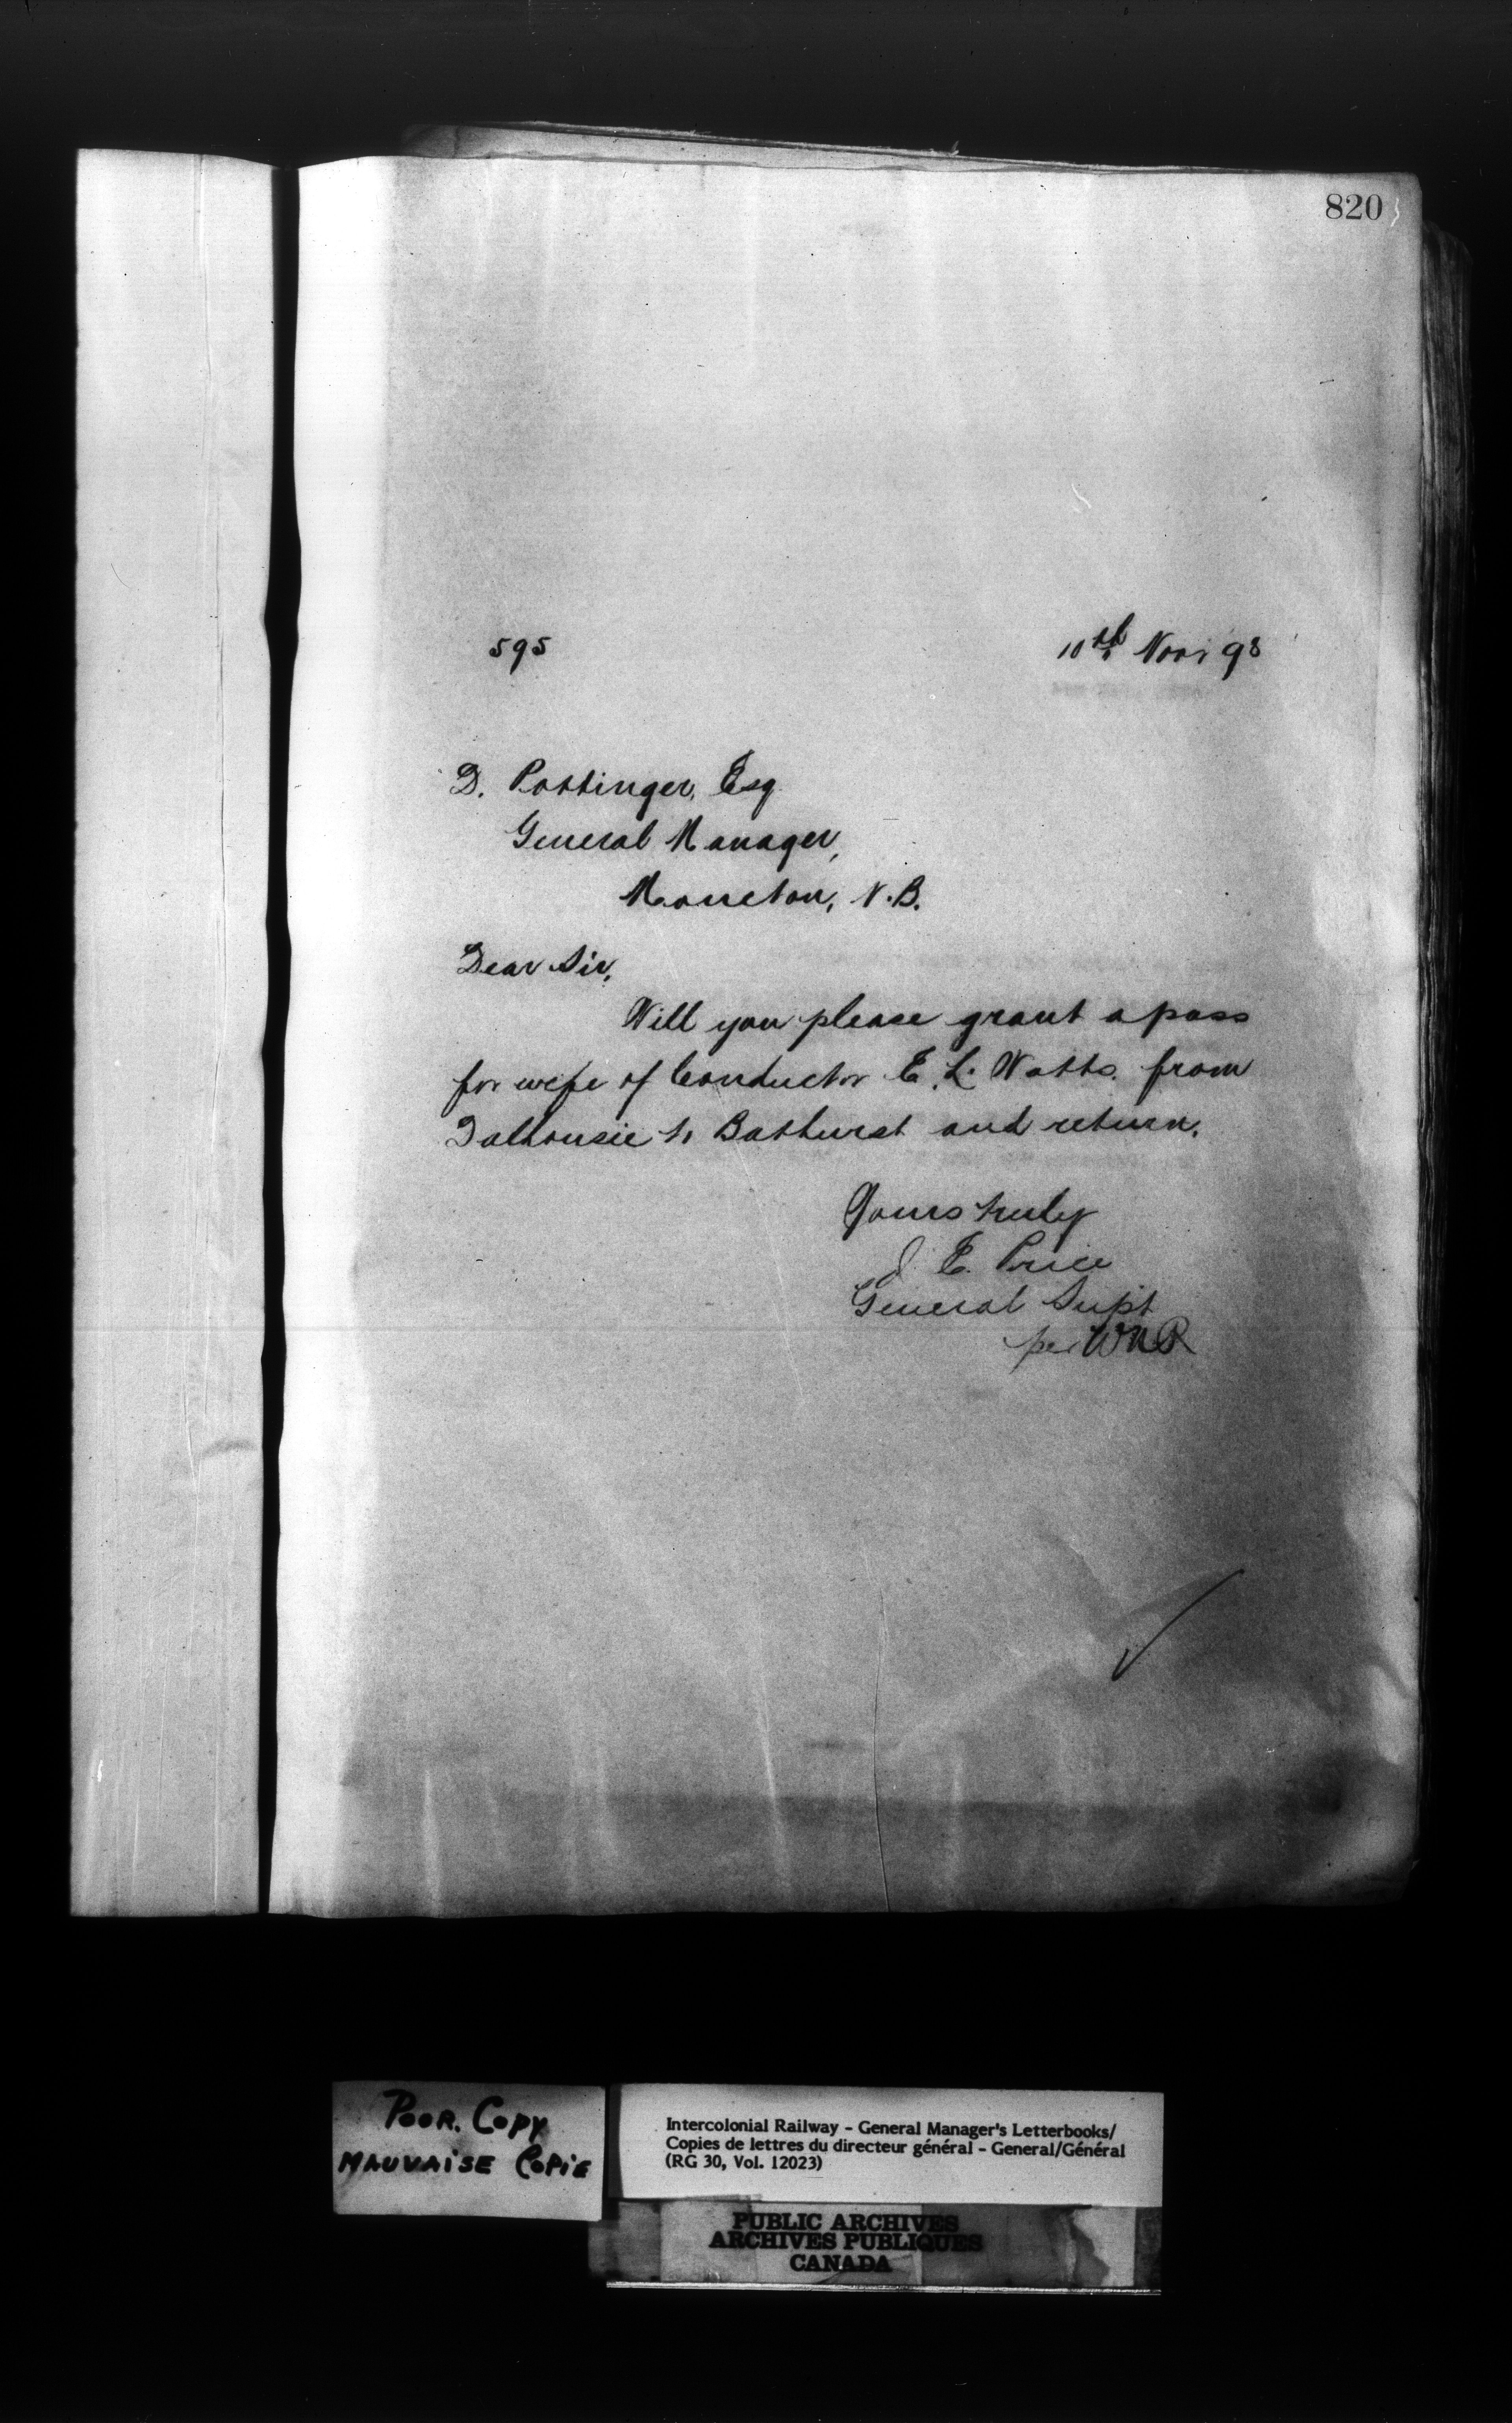 820
595
10th Nov 98
D. Pottinger, Esq
General Manager,
Moncton, N.B.
Dear Sir,
Will you please grant a pass
for wife of Conductor E. L. Watts. from
Dalhousie to Bathurst and return.
Yours truly
J. E. Price
General Supt
per WNR
POOR. COPY
MAUVAISE COPIE
Intercolonial Railway - General Manager's Letterbooks/
Copies de lettres du directeur général - General/Général
(RG 30, Vol. 12023)
PUBLIC ARCHIVES
ARCHIVES PUBLIQUES
CANADA